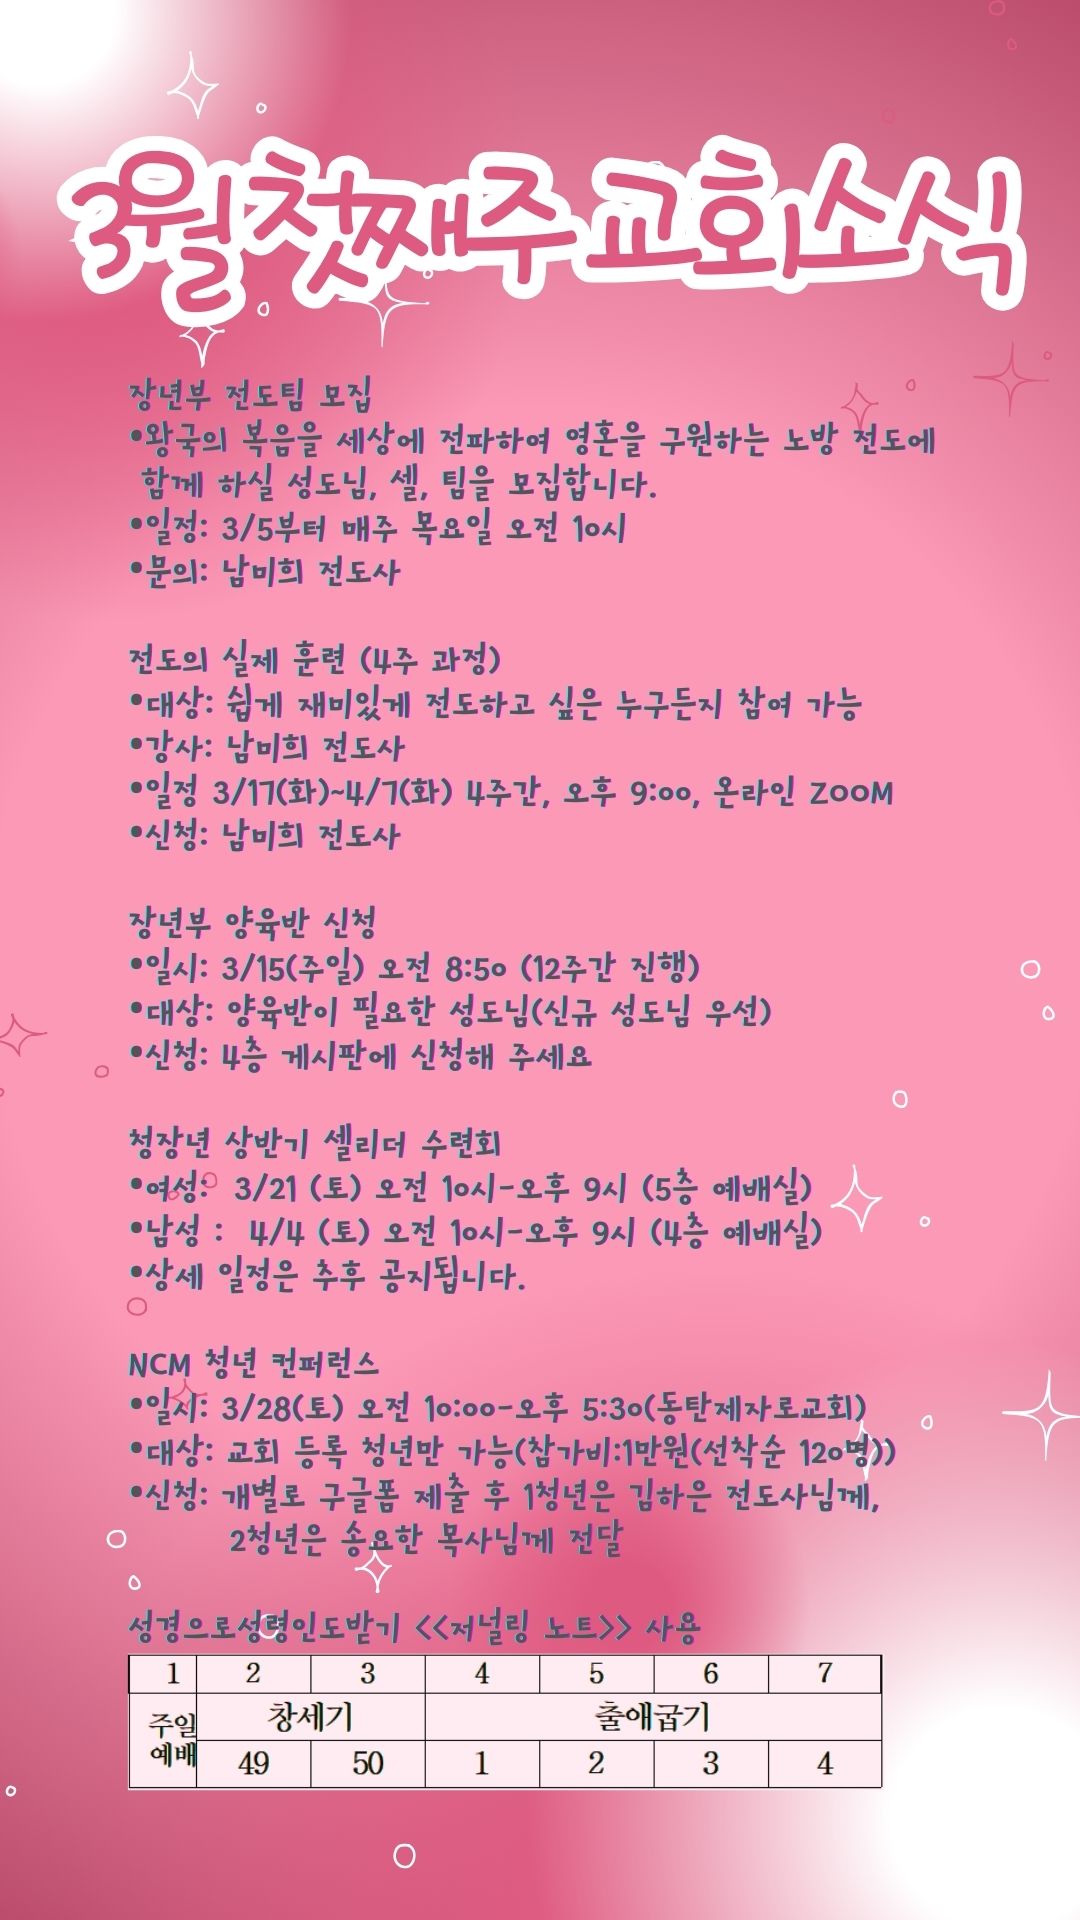 3월 첫째주 교회소식
장년부 전도팀 모집
•왕국의 복음을 세상에 전파하여 영혼을 구원하는 노방 전도에
함께 하실 성도님, 셀, 팀을 모집합니다.
•일정: 3/5부터 매주 목요일 오전 10시
•문의: 남미희 전도사
전도의 실제 훈련 (4주 과정)
•대상: 쉽게 재미있게 전도하고 싶은 누구든지 참여 가능
•강사: 남미희 전도사
•일정 3/17(화)~4/7(화) 4주간, 오후 9:00, 온라인 ZOOM
•신청: 남미희 전도사
장년부 양육반 신청
•일시: 3/15(주일) 오전 8:50 (12주간 진행)
•대상: 양육반이 필요한 성도님(신규 성도님 우선)
•신청: 4층 게시판에 신청해 주세요
청장년 상반기 셀리더 수련회
•여성: 3/21 (토) 오전 10시-오후 9시 (5층 예배실)
•남성 : 4/4 (토) 오전 10시-오후 9시 (4층 예배실)
•상세 일정은 추후 공지됩니다.
NCM 청년 컨퍼런스
•일시: 3/28(토) 오전 10:00-오후 5:30(동탄제자로교회)
•대상: 교회 등록 청년만 가능(참가비:1만원(선착순 120명))
•신청: 개별로 구글폼 제출 후 1청년은 김하은 전도사님께,
2청년은 송요한 목사님께 전달
성경으로성령인도받기 <<저널링 노트>> 사용
1 2 3 4 5 6 7
주일 예배 창세기 출애굽기
49 50 1 2 3 4